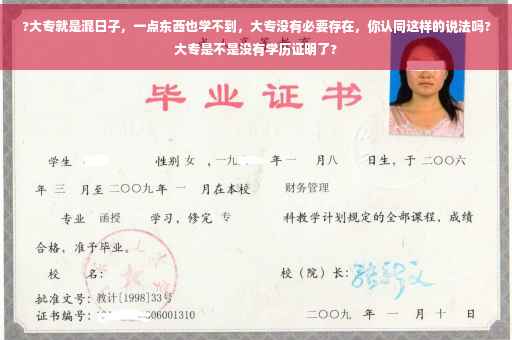 ?大专就是混日子，一点东西也学不到，大专没有必要存在，你认同这样的说法吗?
大专是不是没有学历证明了?
毕业证书
学生 性别 女 ，一九 年 一 月 八 日生，于 二〇〇六
年 三 月至 二〇〇九 年 一 月在本校 财务管理
专业 函授 学习，修完 专 科教学计划规定的全部课程，成绩
合格，准予毕业。
校 名： 校（院）长：
批准文号：教计[1998]33号
证书编号： 06001310 二〇〇九 年 一 月 十 日